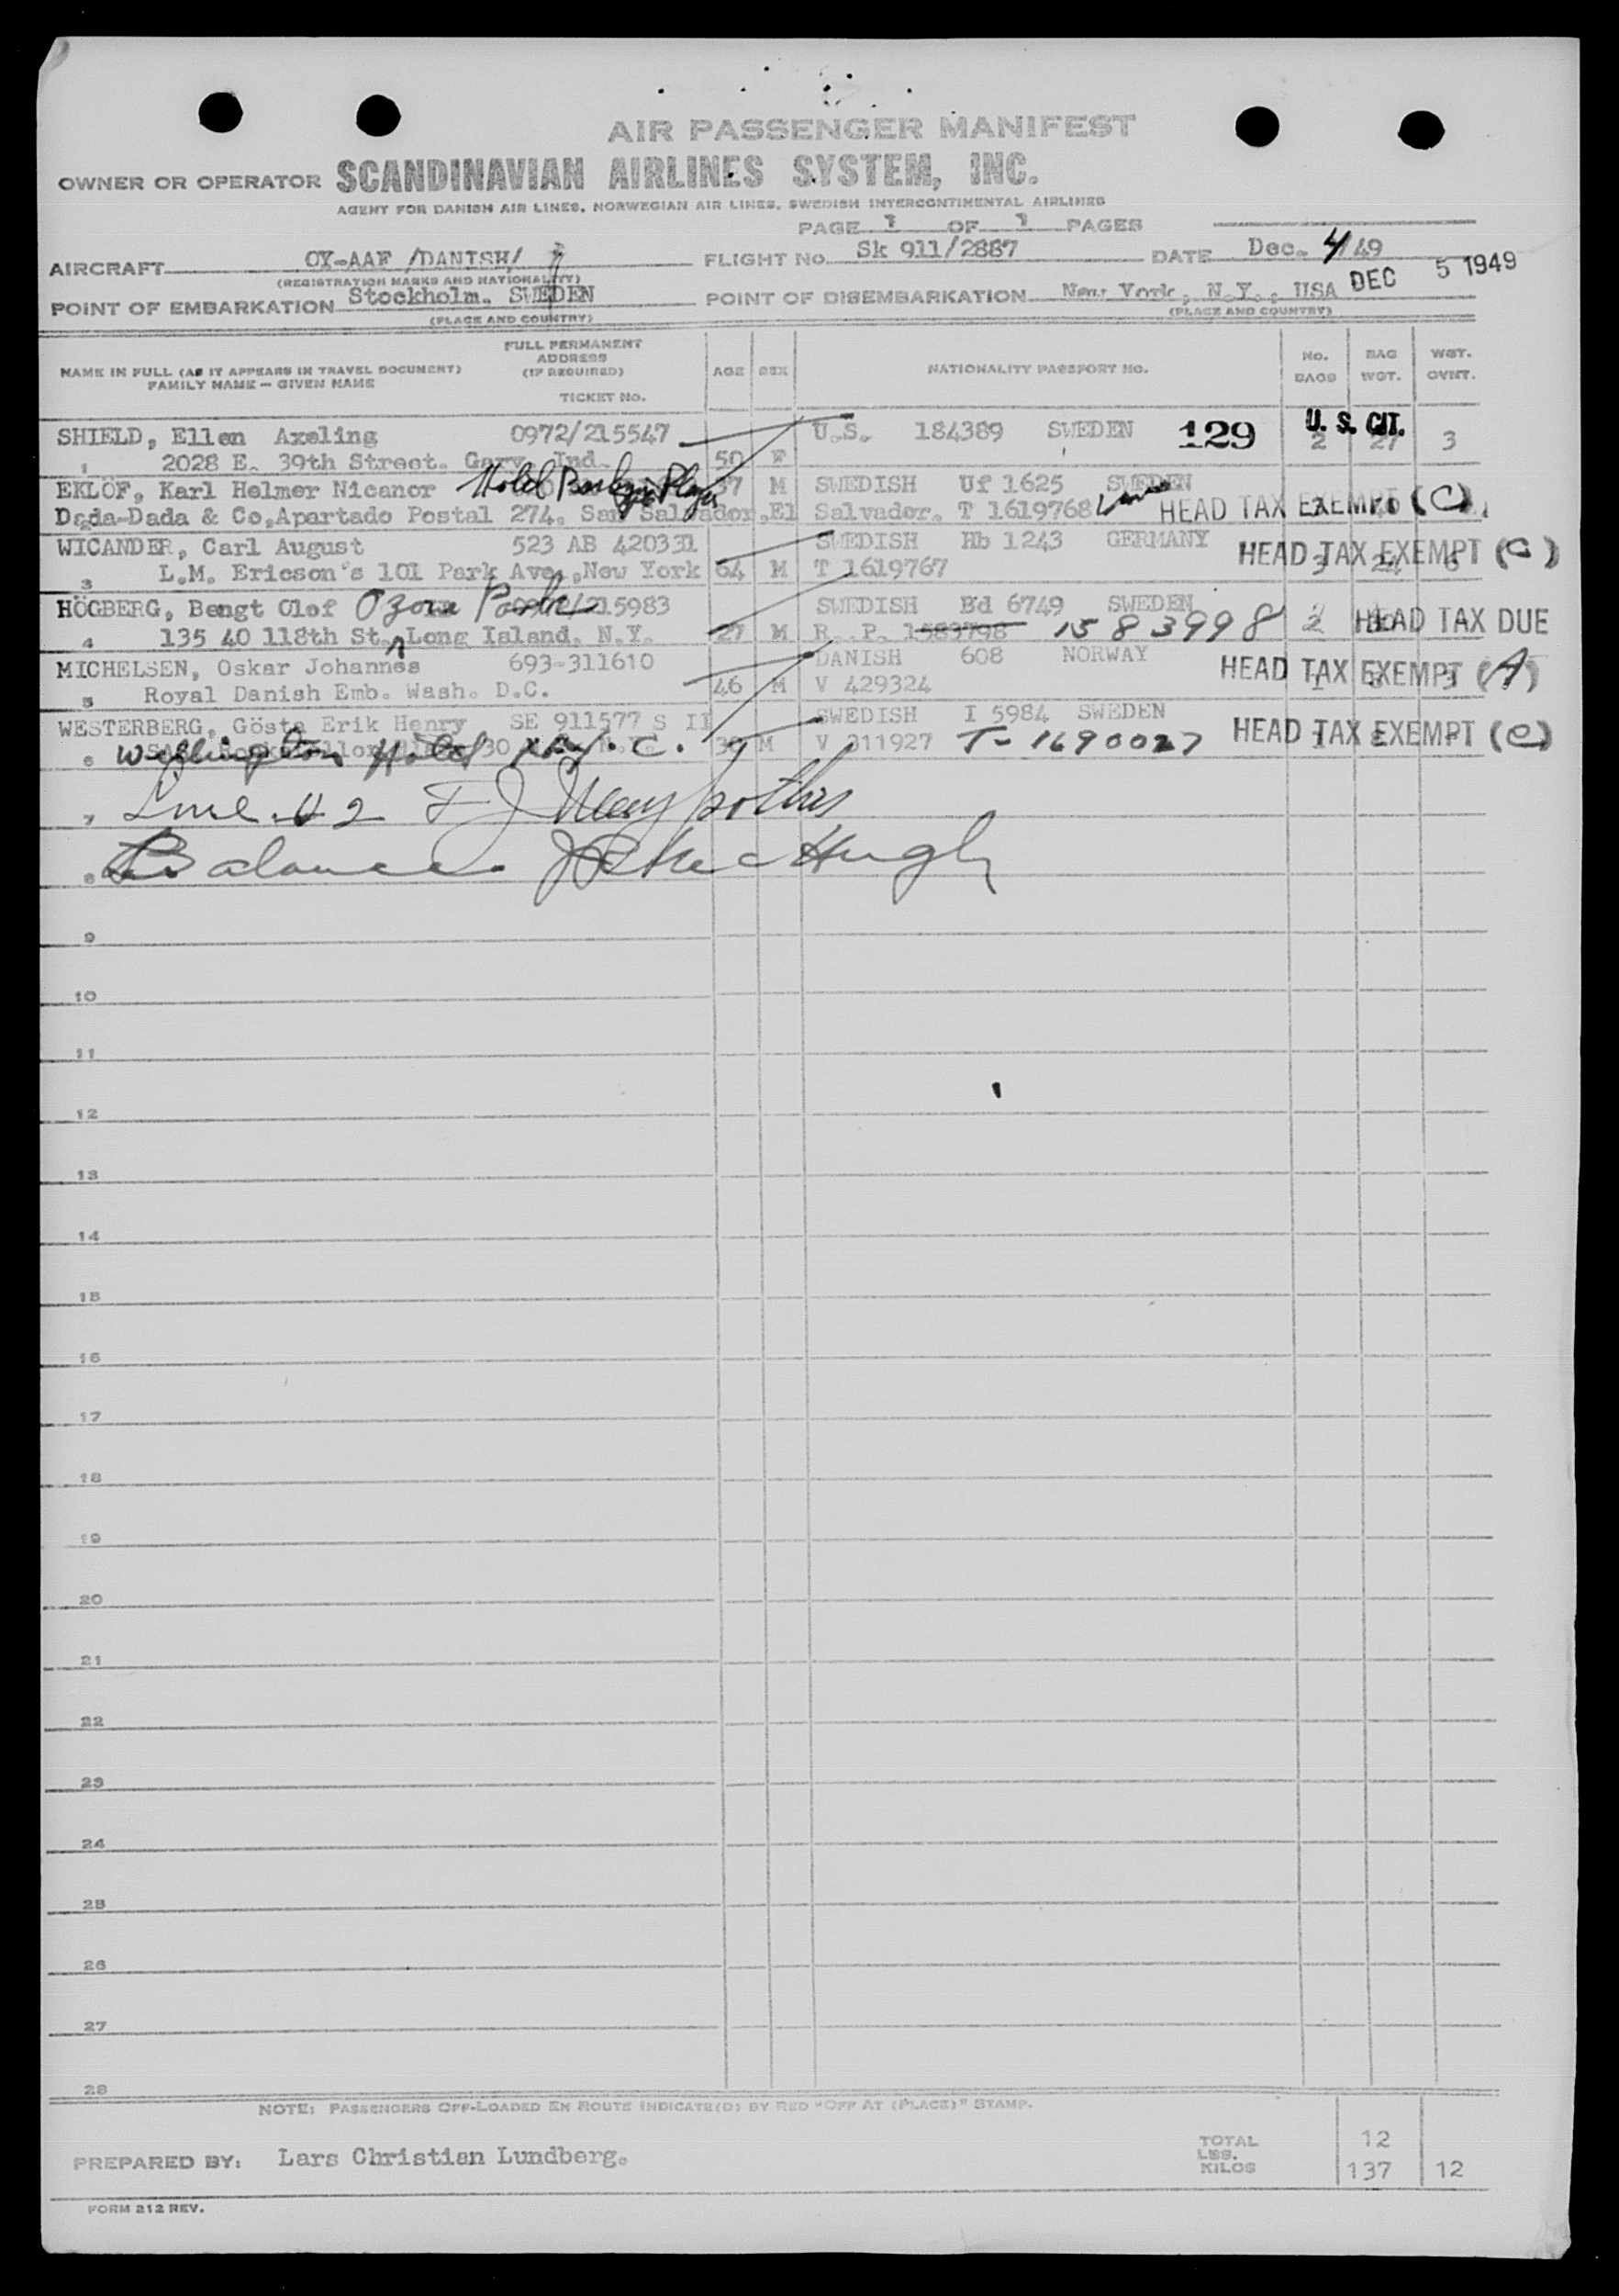 AIR PASSENGER MANIFEST
OWNER OR OPERATOR SCANDINAVIAN AIRLINES SYSTEM, INC.
AGENT FOR DANISH AIR LINES, NORWEGIAN AIR LINES, SWEDISH INTERCONTINENTAL AIRLINES
PAGE 1 OF 1 PAGES
AIRCRAFT OY-AAF /DANISH/ FLIGHT NO. Sk 911/2887 DATE Dec. 4/49
(REGISTRATION MARKS AND NATIONALITY)
DEC 5 1949
POINT OF EMBARKATION Stockholm. SWEDEN POINT OF DISEMBARKATION New York, N.Y., USA
(PLACE AND COUNTRY) (PLACE AND COUNTRY)
NAME IN FULL (AS IT APPEARS IN TRAVEL DOCUMENT) FAMILY NAME – GIVEN NAME
FULL PERMANENT ADDRESS (IF REQUIRED) TICKET NO.
AGE SEX NATIONALITY PASSPORT NO. NO. BAGS BAG WGT. WGT. OVNT.
SHIELD, Ellen Axeling 0972/215547 U.S. 184389 SWEDEN 129 U. S. CIT. 2 27 3
1 2028 E. 39th Street. Gary, Ind. 50 F
EKLÖF, Karl Helmer Nicanor Hotel 37 M SWEDISH Uf 1625 SWEDEN
Dada-Dada & Co.Apartado Postal 274. San Salvador.El Salvador. T 1619768 HEAD TAX EXEMPT (C)
WICANDER, Carl August 523 AB 420331 SWEDISH Hb 1243 GERMANY HEAD TAX EXEMPT (C)
3 L.M. Ericson's 101 Park Ave.,New York 64 M T 1619767 3 24 6
HÖGBERG, Bengt Olof Ozone Park 215983 SWEDISH Bd 6749 SWEDEN
4 135 40 118th St. Long Island. N.Y. 27 M R. P. 1583798 1583998 2 HEAD TAX DUE
MICHELSEN, Oskar Johannes 693-311610 DANISH 608 NORWAY HEAD TAX EXEMPT (A)
5 Royal Danish Emb. Wash. D.C. 46 M V 429324
WESTERBERG, Gösta Erik Henry SE 911577 S II SWEDISH I 5984 SWEDEN HEAD TAX EXEMPT (C)
6 Wellington Hotel N.Y.C. 30 M V 311927 T-1690027
7 Line #2
8 Balance
9
10
11
12
13
14
15
16
17
18
19
20
21
22
23
24
25
26
27
28
NOTE: PASSENGERS OFF-LOADED EN ROUTE INDICATE(D) BY RED "OFF AT (PLACE)" STAMP.
PREPARED BY: Lars Christian Lundberg.
TOTAL 12
LBS.
KILOS 137 12
FORM 212 REV.